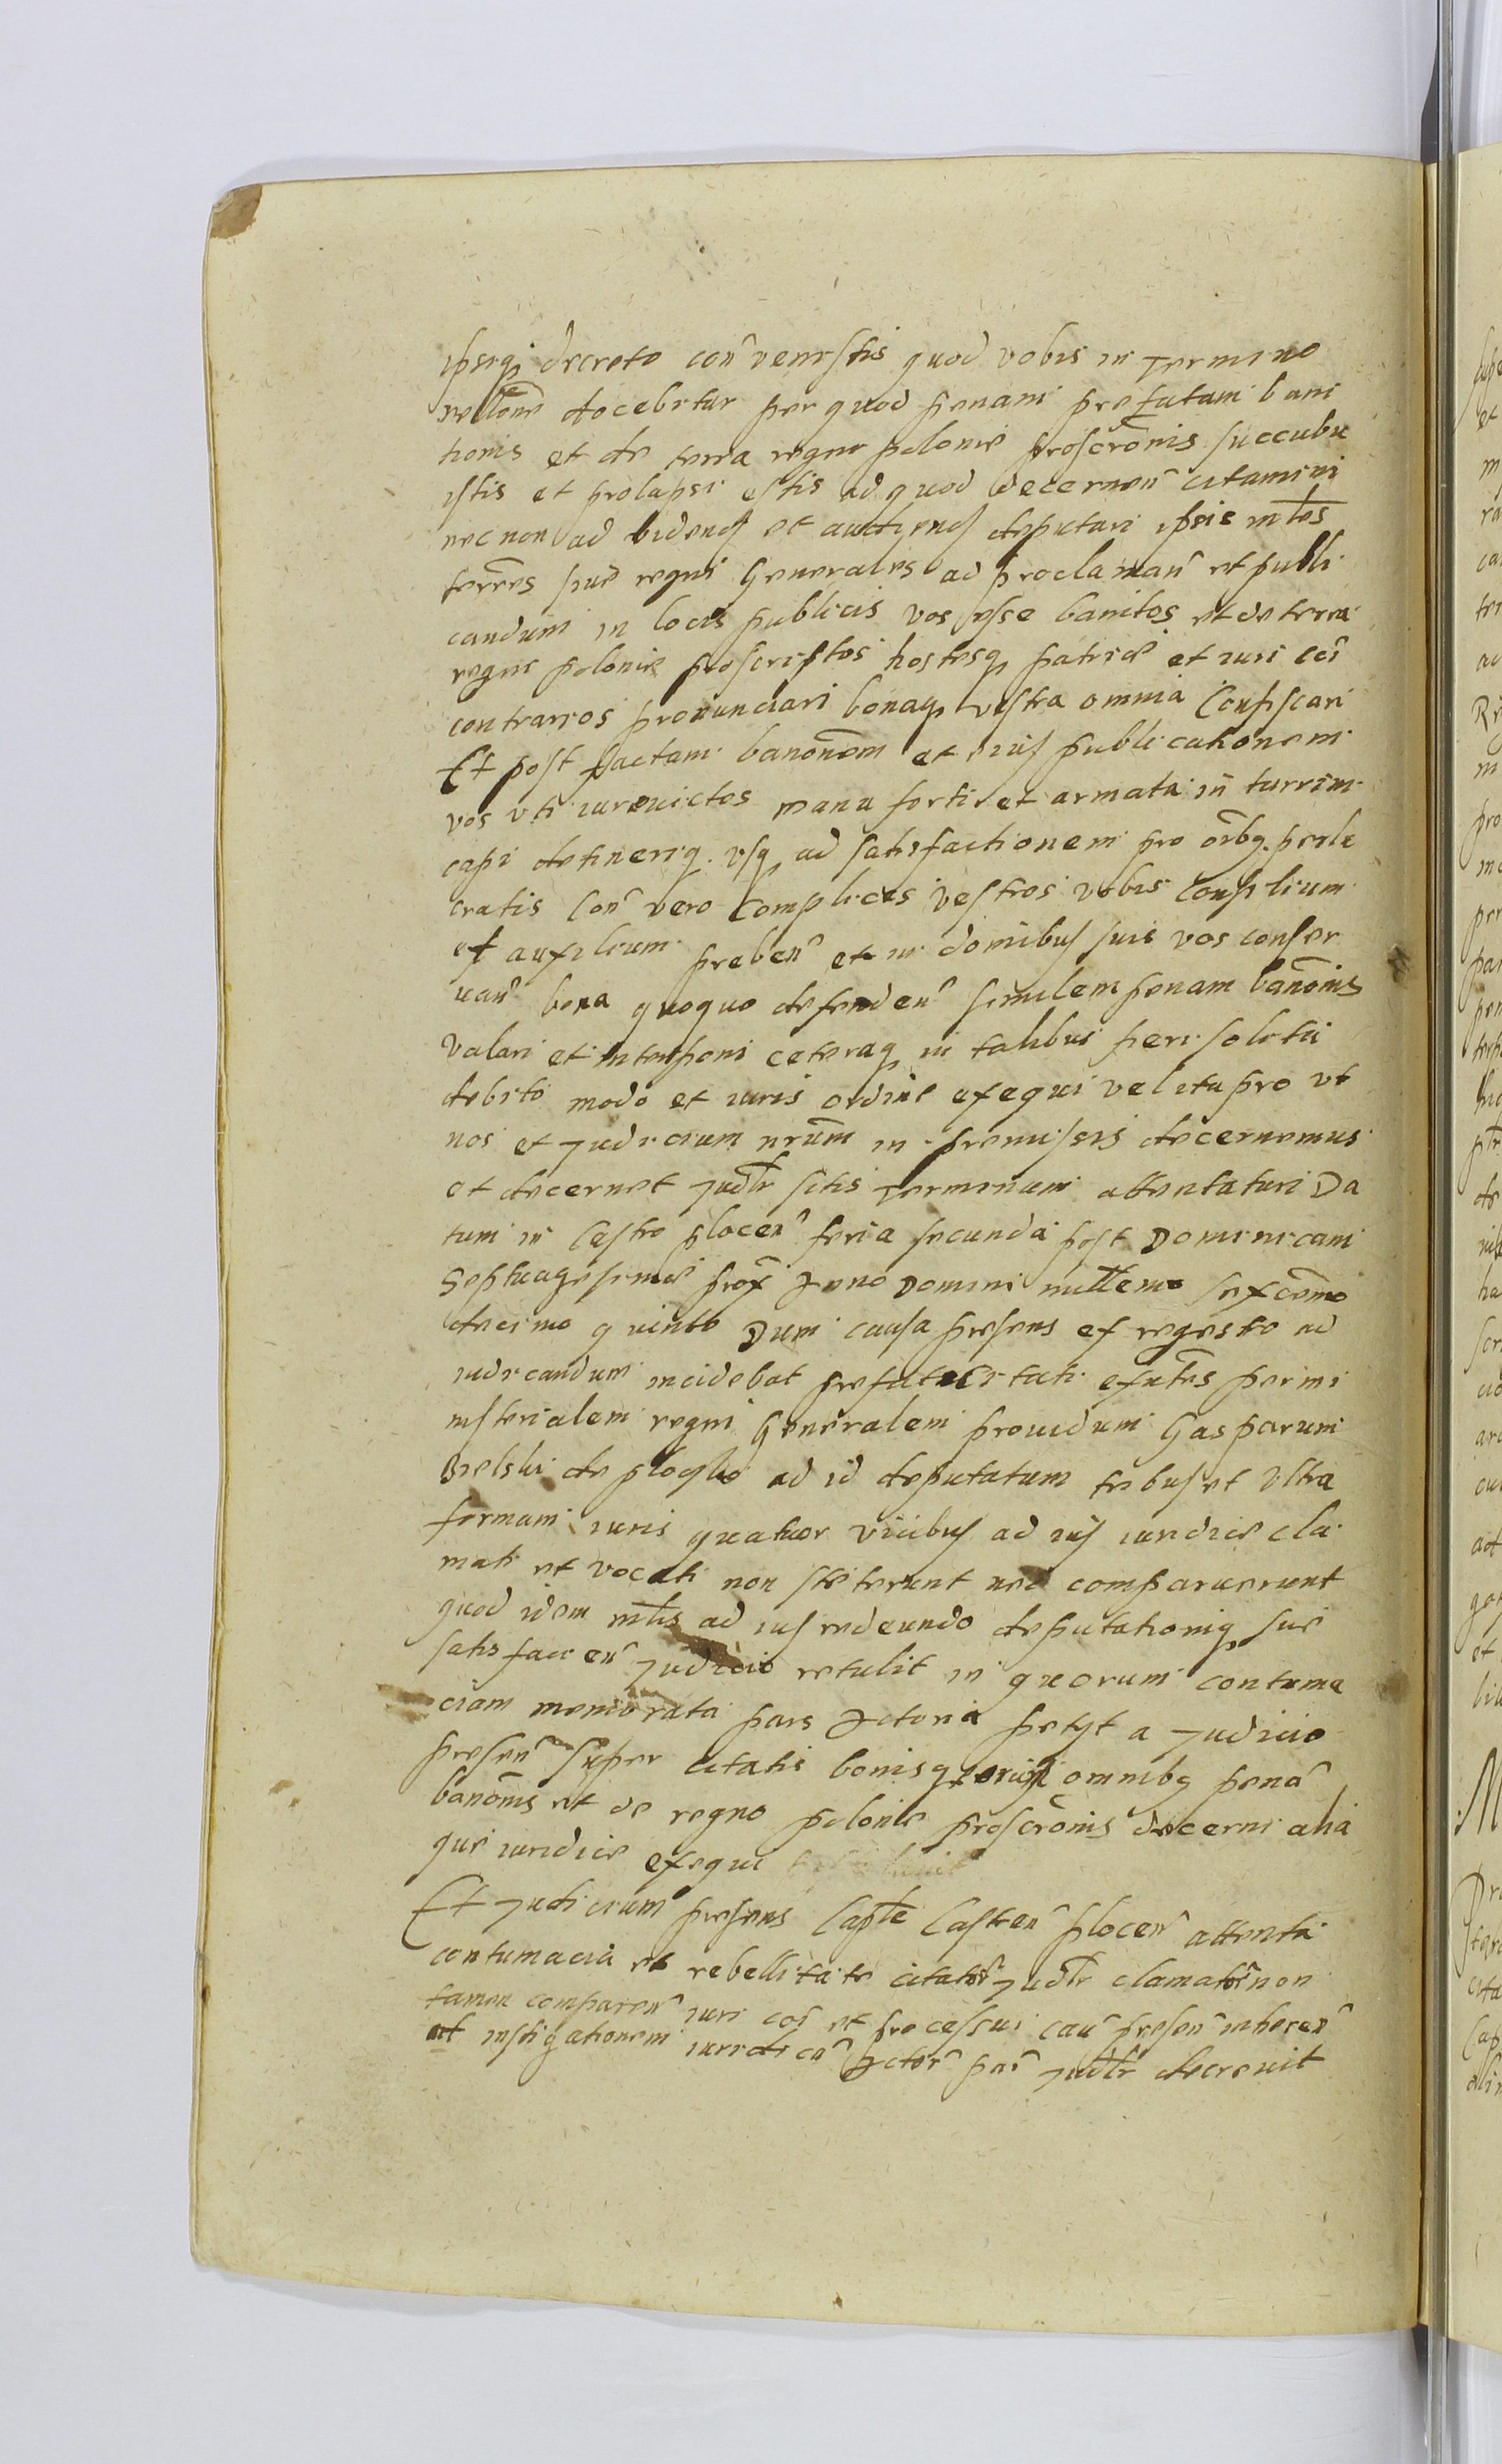 ipsiq; decreto con̄ venistis quod vobis in Termino
docebitur per quod penam prefatam bani
tionis et de terra regni polonie proscrōnis succubu
istis et prolapsi estis ad quod decernen̄ citamini
nec non ad videnḍ et audienḍ deputari ipsis mīles
terrēs siue regni Generales ad proclaman̄ et publi
candum in locis publicis vos esse banitos et de terra
regni polonie proscriptos hostesq; patrie et iuri cōi
contrarios pronunciari bonaq; vestra omnia Confiscari
Et post factam banonēm et eius publicationem
vos vti iureuictos manu forti et armata in turrim
capi detineriq; vsq; ad satisfactionem pro ōibq; perlu
cratis Con̄ vero Complices vestros vobis Consilium
et auxilium preben̄ et in domibus suis vos conser
uan̄ bona quoque defenden̄ similem penam banōnis
Valari et interponi ceteraq; in talibus fieri solita
debito modo et iuris ordine exequi vel ita pro vt
nos et Judicium nrūm in premissis decernemus
et decernet Judlr̄ sitis Terminum attentaturi Da
tum in Castro plocen̄ feria secunda post Dominicam
Septuagesime prox̄ Anno Domini millemo sexcēmo
decimo quinto Dum causa presens ex regestro ad
iudicandum incidebat prefati Citati exn̄tes per mi
nisterialem regni Generalem prouidum Gasparum
Bielski de ad id deputatum tribus et Vltra
formam iuris quatuor vicibus ad ius iuridice cla
mati et vocati non steterunt nec comparuerunt
quod idem mīlis ad ius redeundo deputationiq; sue
satisfacien̄ Judicio retulit in quorum contuma
ciam memorata pars Actoria petyt a Judicio
presen̄ super citatis bonisq; eorum omnibq; pena̅
banōnis et de regno polonie proscrōnis decerni alia
que iuridice exequi
Et Judicium presens Caplē Castren̄ plocen̄ attenta
contumacia et rebellitate citator̄ Judlr̄ clamator̄ non
tamen comparen̄ iuri cōi et processui cau̅ presen̄ inheren̄
ad instigationem iuridica̅ Actor̄ par̄ Judlr̄ decreuit